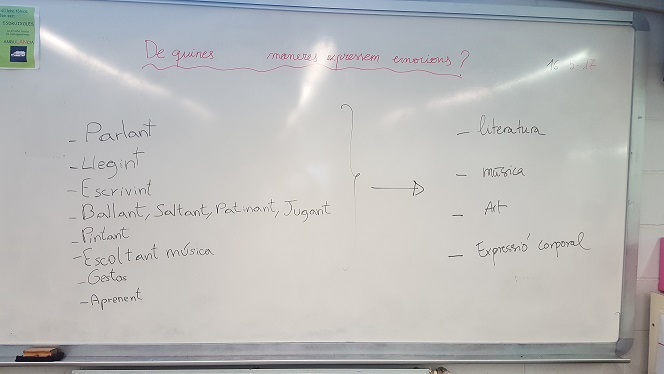 De quines maneres expressem emocions?
- Parlant
- Llegint
- Escrivint
- Ballant, Saltant, Patinant, Jugant
- Pintant
- Escoltant música
- Gestos
- Aprenent
- literatura
- música
- Art
- Expressió corporal